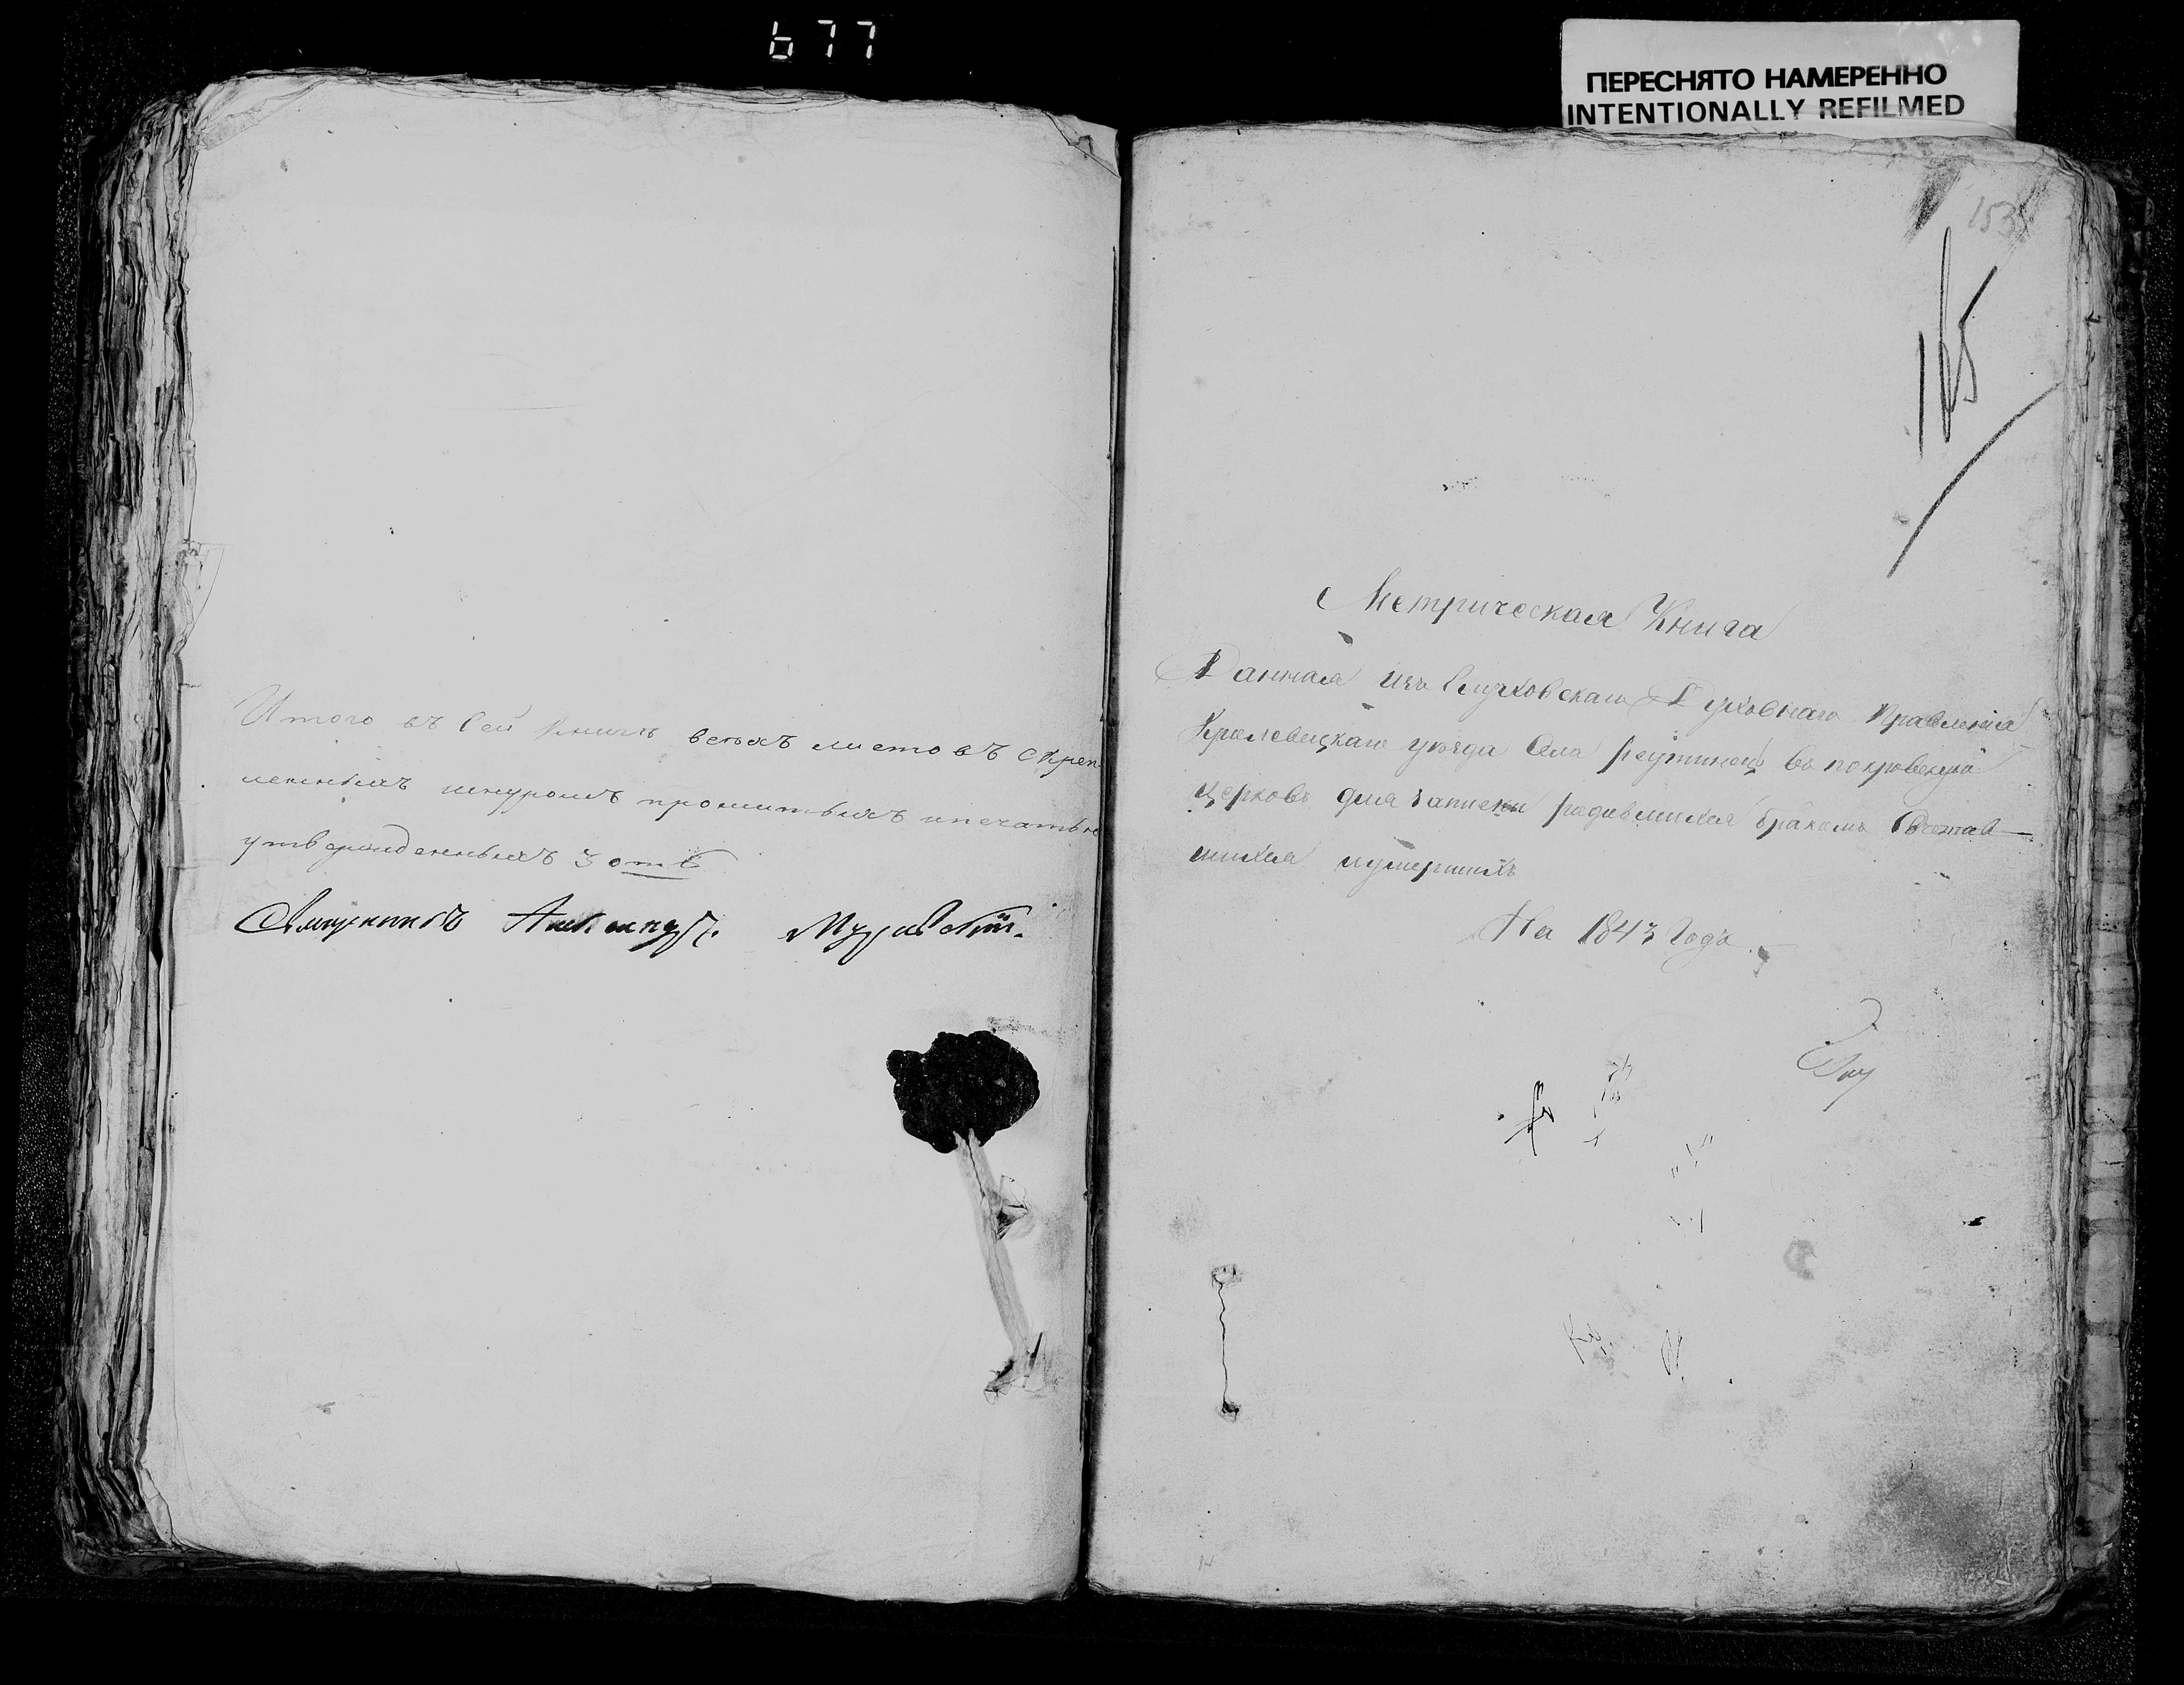 677
ПЕРЕСНЯТО НАМЕРЕННО
INTENTIONALLY REFILMED
Итого въ сей книгѣ всѣхъ листовъ скреп-
ленныхъ шнуромъ прошитыхъ и печатью
утвержденныхъ
153
165
Метрическая Книга
Данная изъ Глуховскаго Духовнаго Правленія
Кролевецкаго уезда села реутинецъ въ покровскую
церковь для записки родившихся бракомъ сочетав-
шихся и умершихъ
На 1843 Годъ